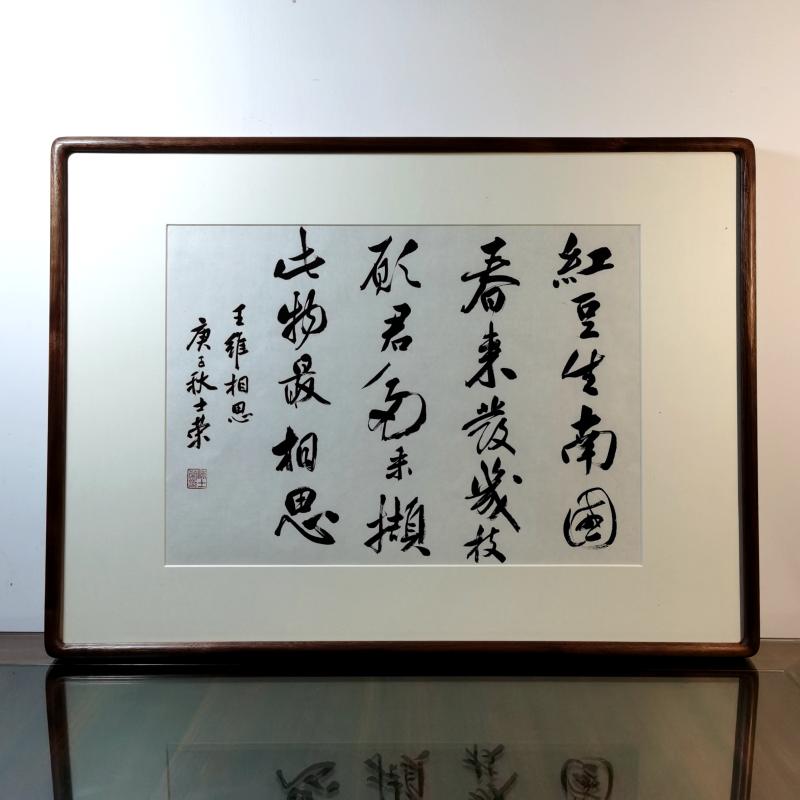 紅豆生南國
春來發幾枝
願君多采擷
此物最相思
王維相思
庚子秋士榮